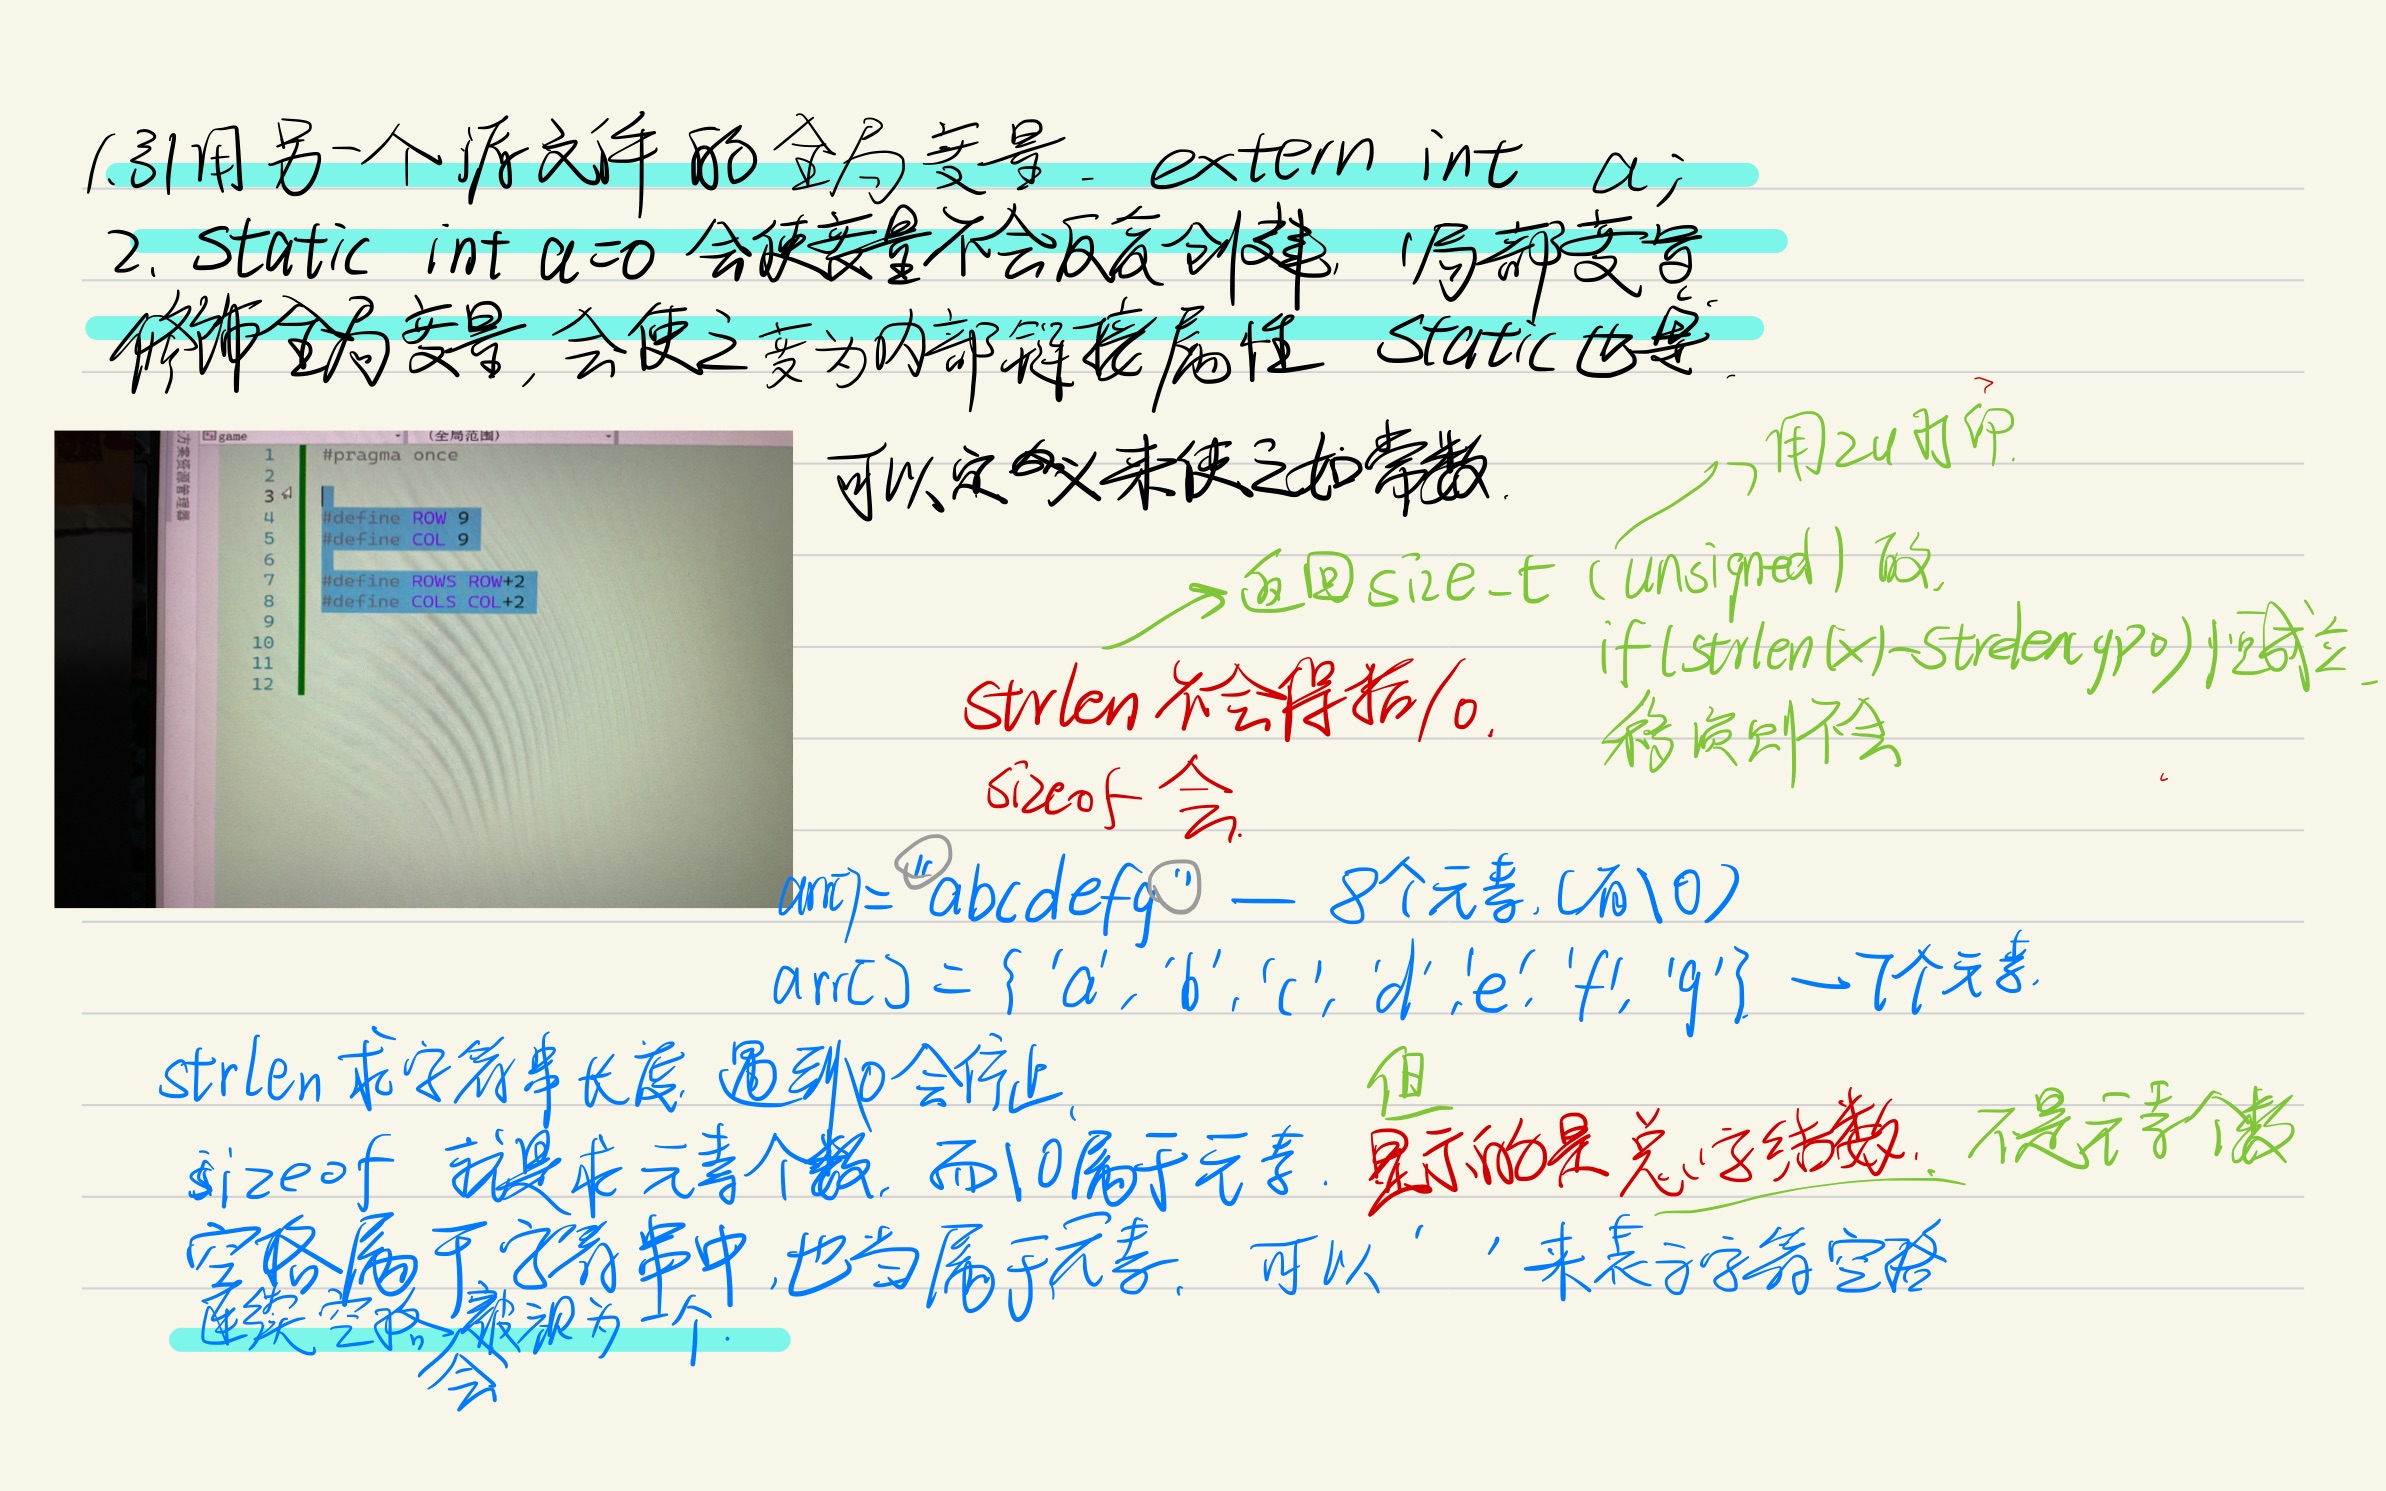 1.引用另一个源文件的全局变量. extern int a;
2. static int a=0 会使变量不会反复创建. (局部变量
修饰全局变量,会使之变为内部链接属性 static也是.
game (全局范围)
方案资源管理器
1 #pragma once
2
3
4 #define ROW 9
5 #define COL 9
6
7 #define ROWS ROW+2
8 #define COLS COL+2
9
10
11
12
可以定义来使之如常数.
用zu打印.
返回size-t (unsigned) 的.
if(strlen(x)-strlen(y)>0)恒成立.
则不会
strlen 不会得括/0.
sizeof 会.
arr[]="abcdefg" — 8个元素.(有\0)
arr[] = { 'a', 'b', 'c', 'd', 'e', 'f', 'g'} — 7个元素.
strlen 求字符串长度. 遇到\0会停止.
但
sizeof 就是求元素个数. 而\0属于元素. 显示的是总字结数. 不是元素个数
空格属于字符串中,也当属于元素. 可以' '来表示字符空格
连续空格会被视为一个.